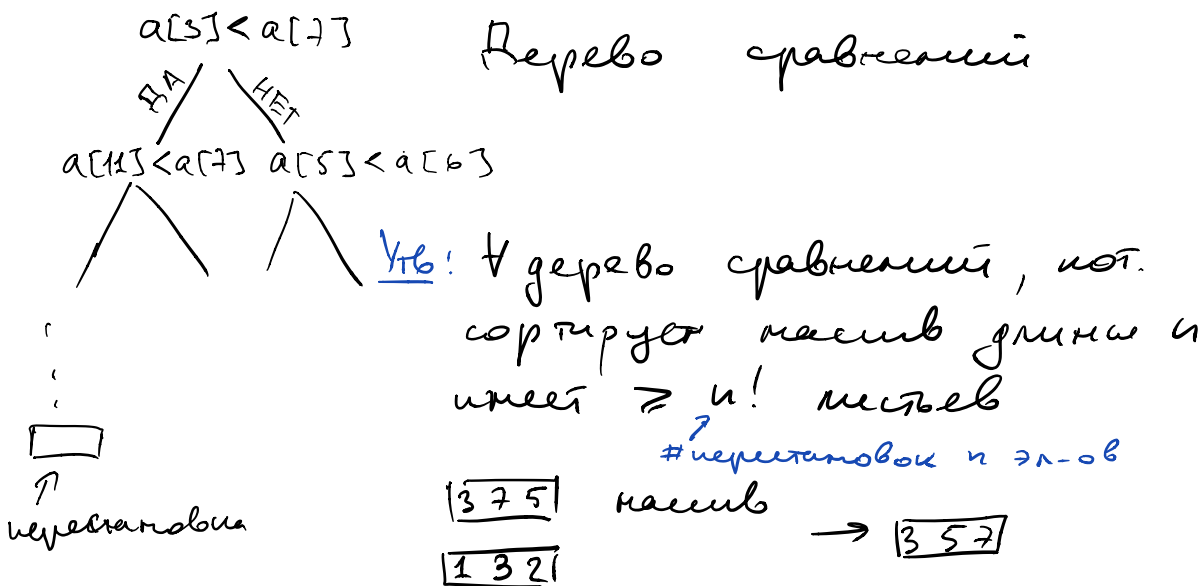 a[3] < a[7]
Дерево сравнений
ДА НЕТ
a[11] < a[7] a[5] < a[6]
Утв: ∀ дерево сравнений, кот.
сортирует массив длины n
имеет ⩾ n! листьев
#перестановок n эл-ов
3 7 5 массив
перестановка
→ 3 5 7
1 3 2